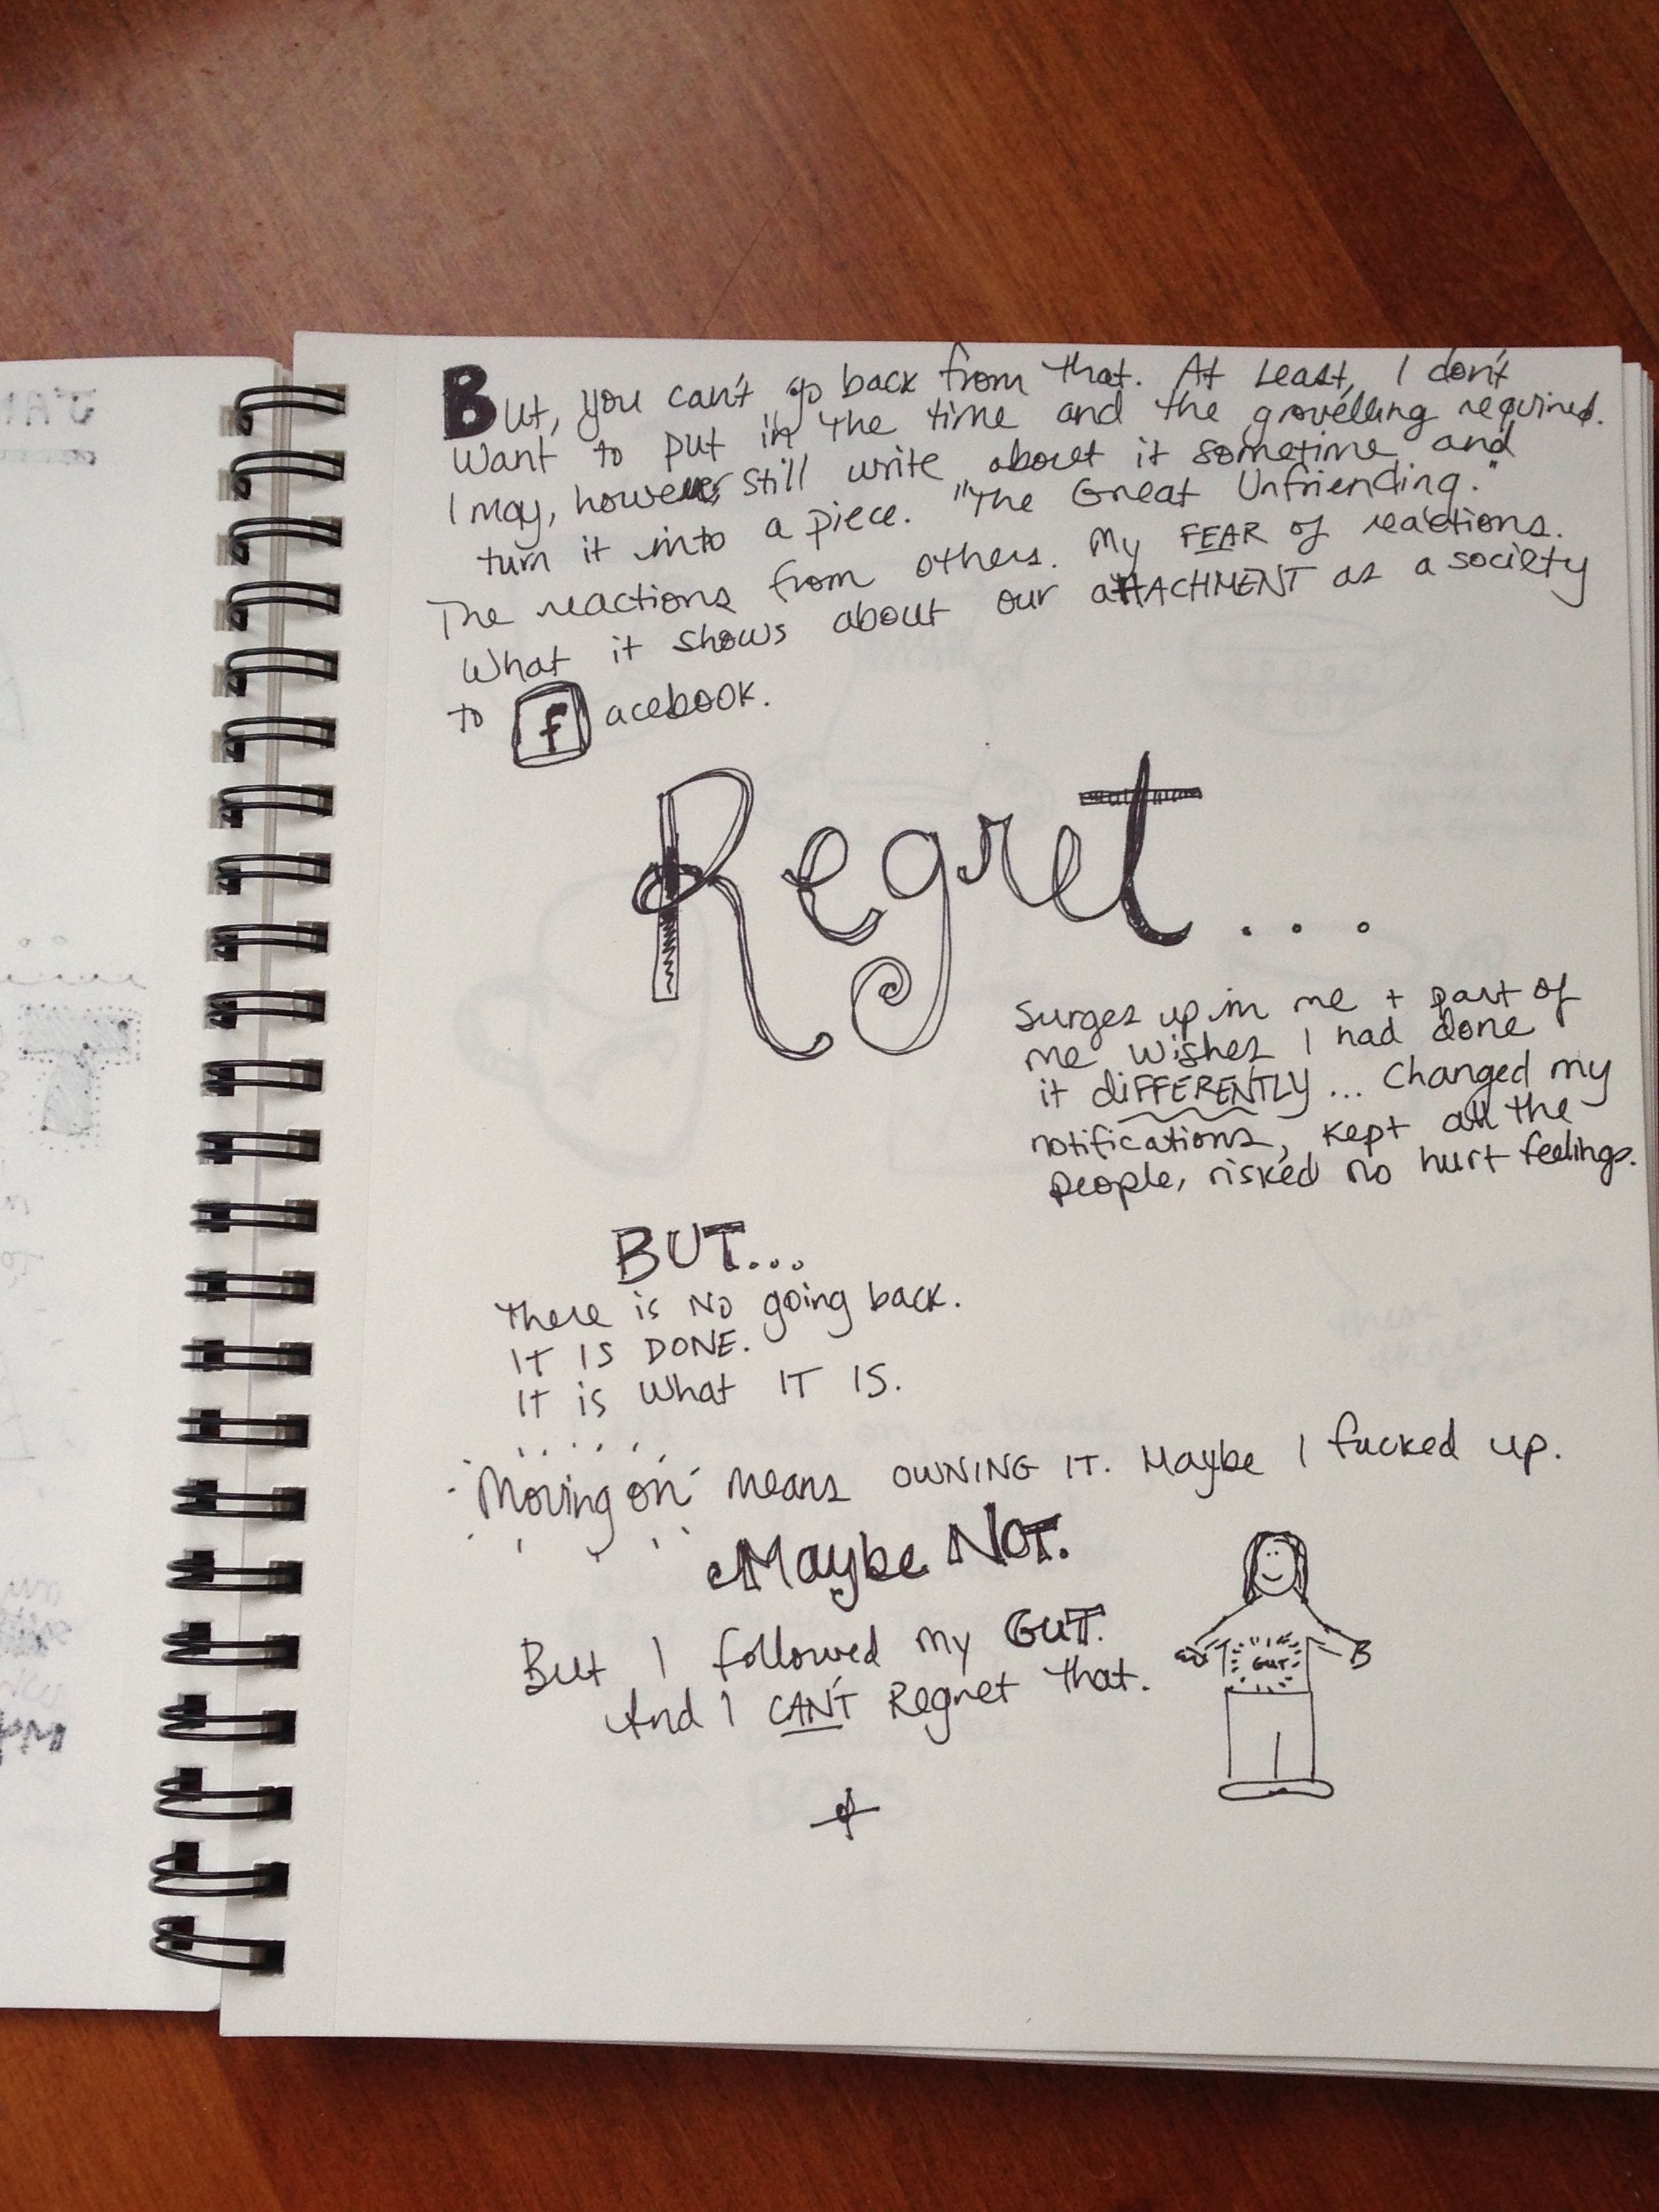 But, you can't go back from that. At Least, I don't
want to put in the time and the grovelling required.
I may, however, still write about it sometime and
turn it into a piece. "The Great Unfriending."
The reactions from others. My FEAR of reactions.
What it shows about our attACHMENT as a society
to facebook.
Regret...
Surges up in me + part of
me wishes I had done
it diFFERENTLY... Changed my
notifications, kept all the
people, risked no hurt feelings.
BUT...
There is NO going back.
IT IS DONE.
It is what IT IS.
Moving on means OWNING IT. Maybe I fucked up.
Maybe NOT.
But I followed my GUT.
And I CAN'T Regret that.
GUT